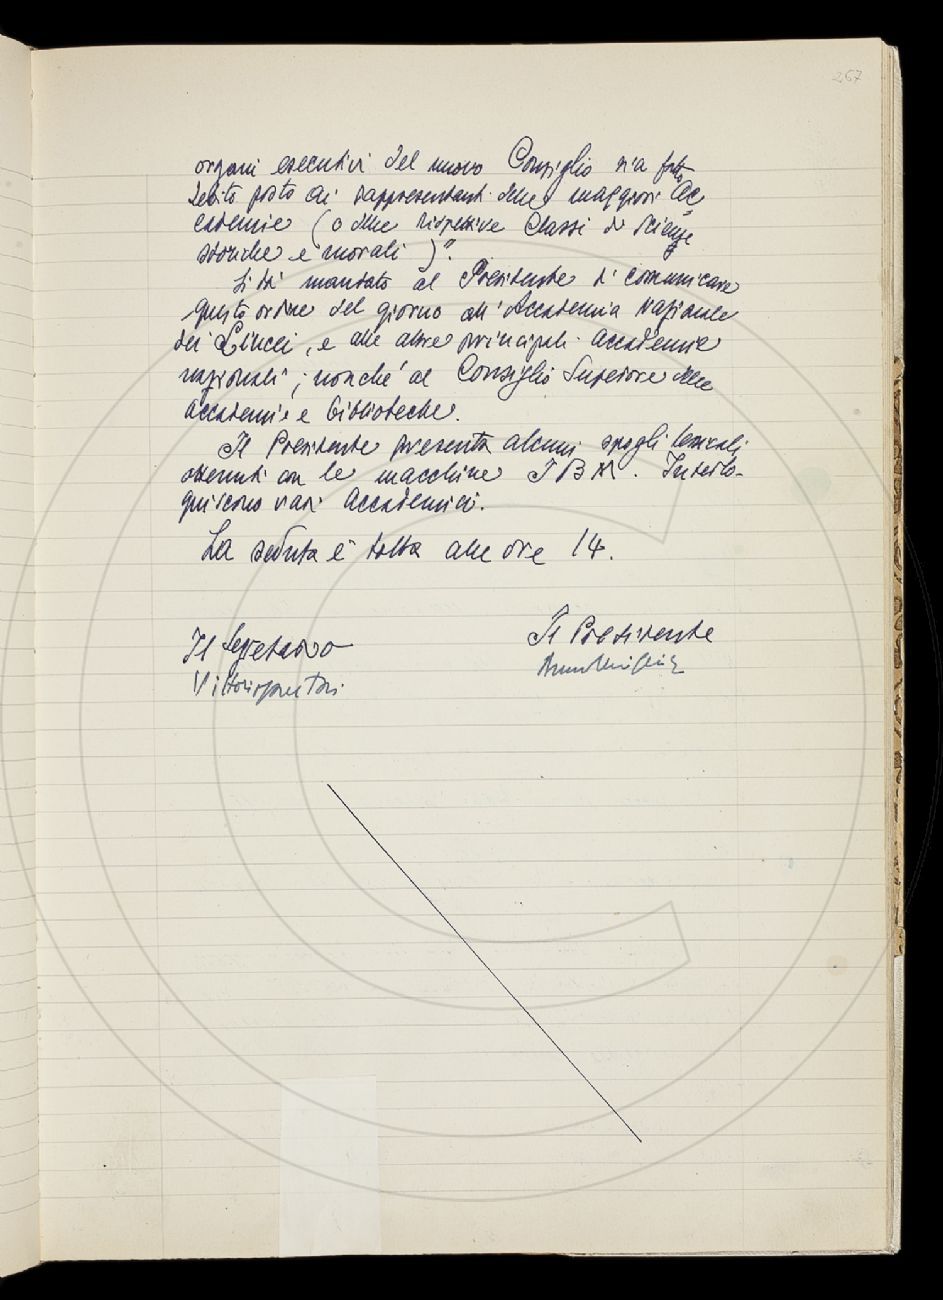 267
organi esecutivi del nuovo Consiglio sia fatto
debito posto ai rappresentanti delle maggiori Ac=
cademie (o delle rispettive Classi di Scienze
storiche e morali)".
Si dà mandato al Presidente di comunicare
questo ordine del giorno all'Accademia Nazionale
dei Lincei, e alle altre principali accademie
nazionali; nonché al Consiglio Superiore delle
accademie e biblioteche.
Il Presidente presenta alcuni spogli lessicali
ottenuti con le macchine IBM. Interlo-
quiscono vari accademici.
La seduta è tolta alle ore 14.
Il Presidente
Il Segretario